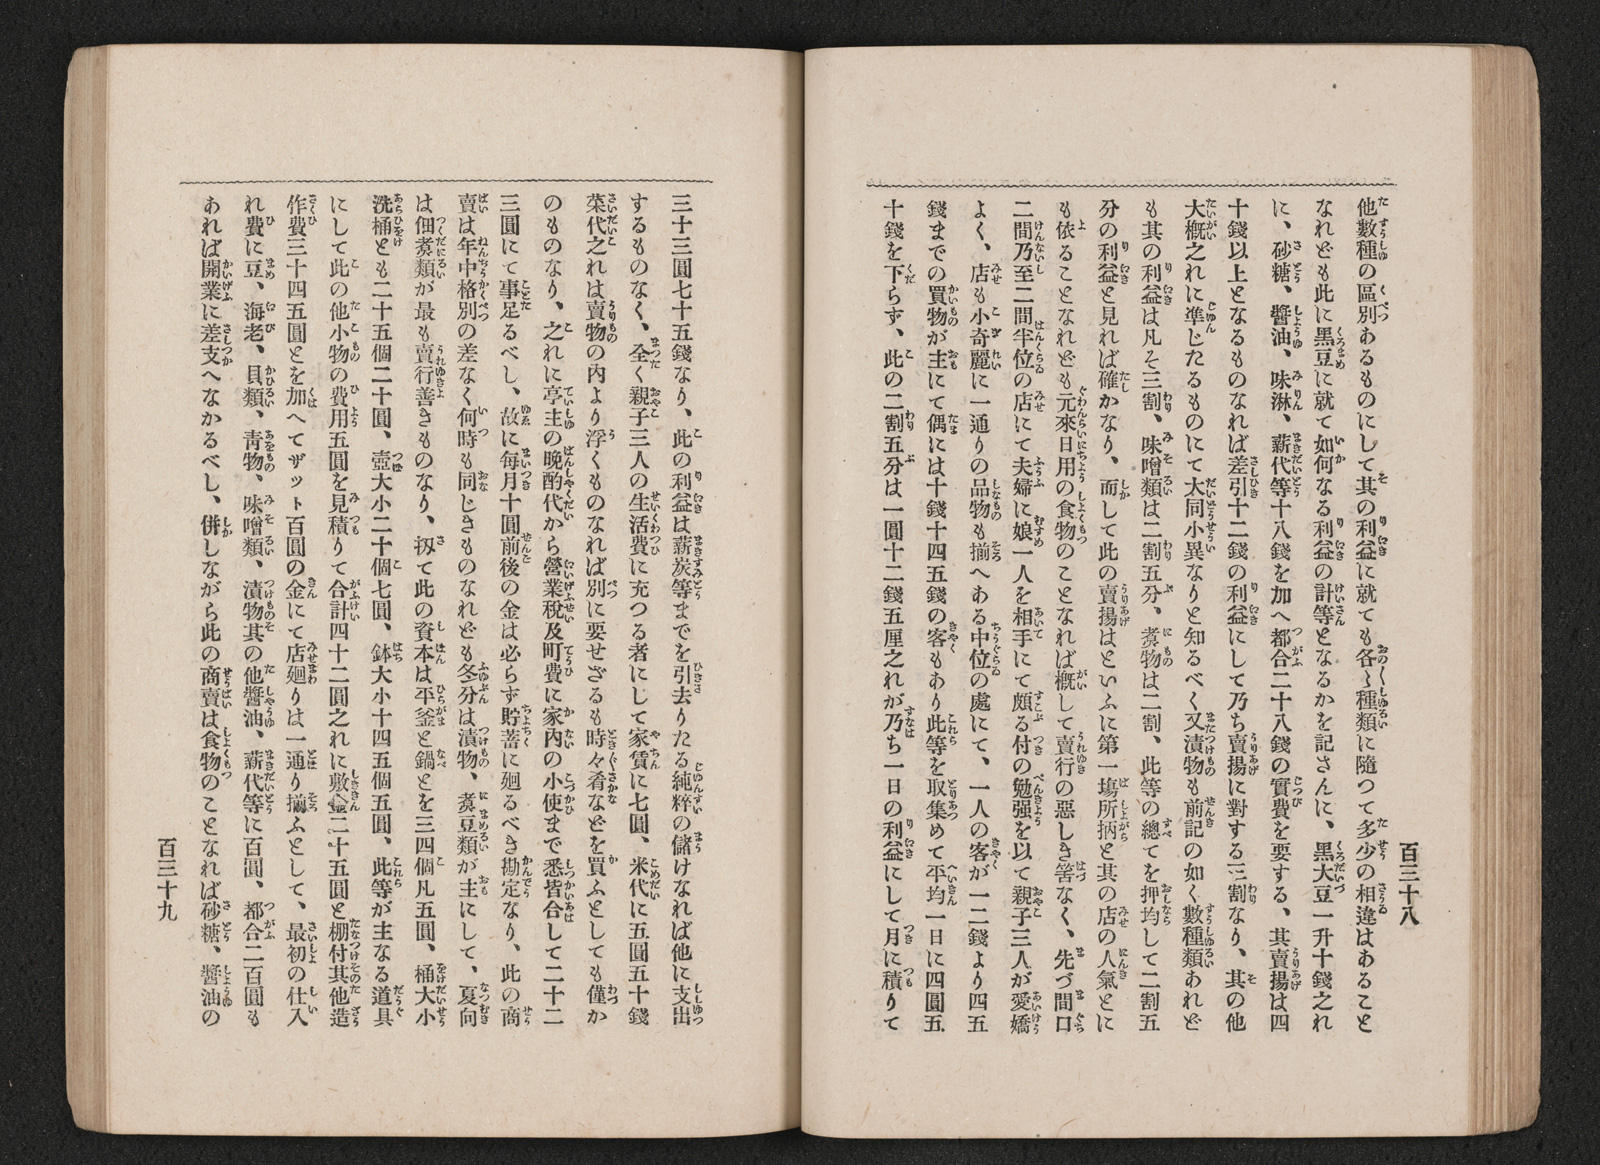 百三十八
他數種の區別あるものにして其の利益に就ても各〻種類に隨つて多少の相違はあること
なれども此に黒豆に就て如何なる利益の計等となるかを記さんに、黒大豆一升十錢之れ
に、砂糖、醬油、味淋、薪代等十八錢を加へ都合二十八錢の實費を要する、其賣揚は四
十錢以上となるものなれば差引十二錢の利益にして乃ち賣揚に對する三割なり、其の他
大概之れに準じたるものにて大同小異なりと知るべく又漬物も前記の如く數種類あれど
も其の利益は凡そ三割、味噌類は二割五分、煑物は二割、此等の總てを押均して二割五
分の利益と見れば確かなり、而して此の賣揚はといふに第一塲所柄と其の店の人氣とに
も依ることなれども元來日用の食物のことなれば槪して賣行の惡しき筈なく、先づ間口
二間乃至二間半位の店にて夫婦に娘一人を相手にて頗る付の勉强を以て親子三人が愛嬌
よく、店も小奇麗に一通りの品物も揃へある中位の處にて、一人の客が一二錢より四五
錢までの買物が主にて偶には十錢十四五錢の客もあり此等を取集めて平均一日に四圓五
十錢を下らず、此の二割五分は一圓十二錢五厘之れが乃ち一日の利益にして月に積りて
三十三圓七十五錢なり、此の利益は薪炭等までを引去りたる純粹の儲けなれば他に支出
するものなく、全く親子三人の生活費に充つる者にじて家賃に七圓、米代に五圓五十錢
菜代之れは賣物の内より浮くものなれば別に要せざるも時々肴などを買ふとしても僅か
のものなり、之れに亭主の晩酌代から營業稅及町費に家内の小使まで悉皆合して二十二
三圓にて事足るべし、故に每月十圓前後の金は必らず貯蓄に廻るべき勘定なり、此の商
賣は年中格別の差なく何時も同じきものなれども冬分は漬物、煑豆類が主にして、夏向
は佃煑類が最も賣行善きものなり、扨て此の資本は平釜と鍋とを三四個凡五圓、桶大小
洗桶とも二十五個二十圓、壺大小二十個七圓、鉢大小十四五個五圓、此等が主なる道具
にして此の他小物の費用五圓を見積りて合計四十二圓之れに敷金二十五圓と棚付其他造
作費三十四五圓とを加へてザット百圓の金にて店廻りは一通り揃ふとして、最初の仕入
れ費に豆、海老、貝類、青物、味噌類、漬物其の他醬油、薪代等に百圓、都合二百圓も
あれば開業に差支へなかるべし、併しながら此の商賣は食物のことなれば砂糖、醬油の
百三十九